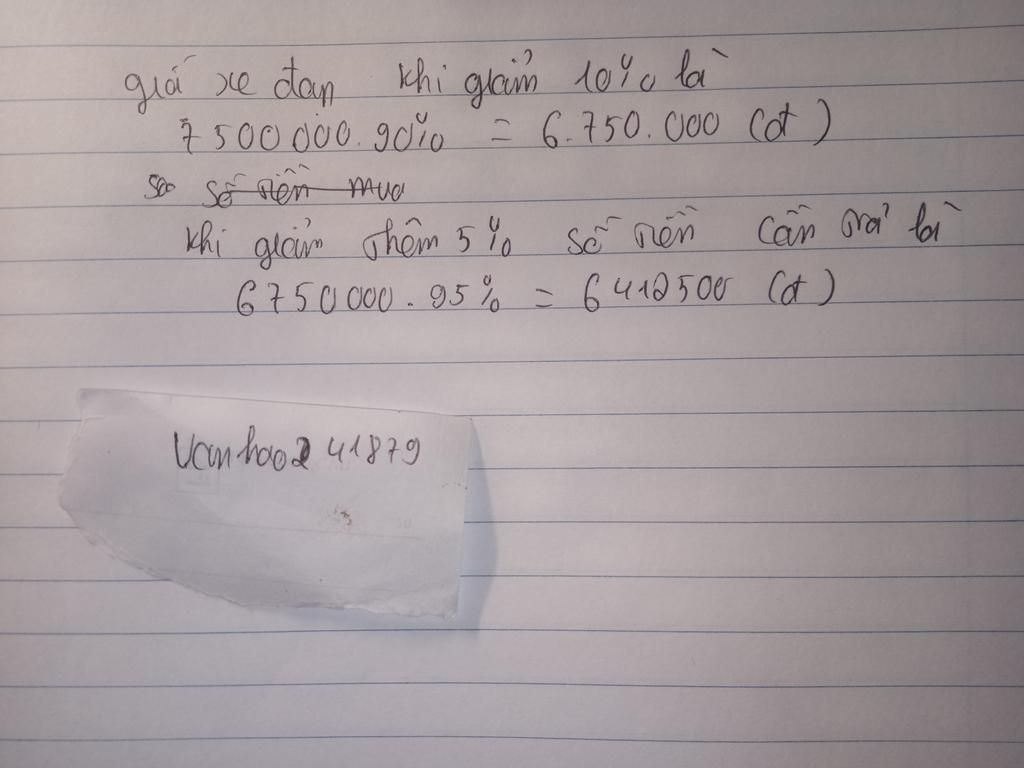 giá xe đạp khi giảm 10% là
7500000.90% = 6.750.000 (đ)
so số tiền mua
khi giảm thêm 5% số tiền cần trả là
6750000.95% = 6412500 (đ)
Vanhao241879